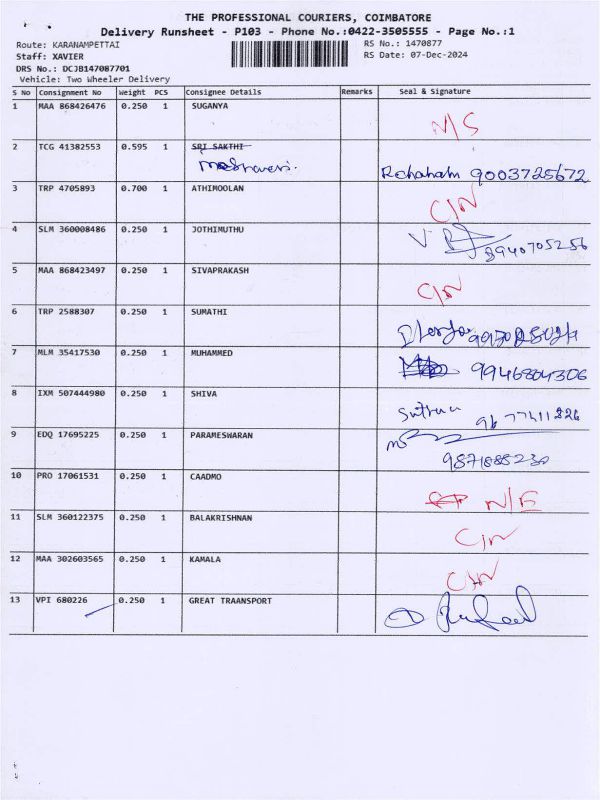 THE PROFESSIONAL COURIERS, COIMBATORE
Delivery Runsheet - P103 - Phone No.:0422-3505555 - Page No.:1
Route: KARANAMPETTAI RS No.: 1470877
Staff: XAVIER RS Date: 07-Dec-2024
DRS No.: DCJB147087701
Vehicle: Two Wheeler Delivery
S No Consignment No Weight PCS Consignee Details Remarks Seal & Signature
1 MAA 868426476 0.250 1 SUGANYA N/S
2 TCG 41382553 0.595 1 SRI SAKTHI
9003725672
3 TRP 4705893 0.700 1 ATHIMOOLAN C/N
4 SLM 360008486 0.250 1 JOTHIMUTHU 8940705256
5 MAA 868423497 0.250 1 SIVAPRAKASH C/N
6 TRP 2588307 0.250 1 SUMATHI
7 MLM 35417530 0.250 1 MUHAMMED 9946804306
8 IXM 507444980 0.250 1 SHIVA
9 EDQ 17695225 0.250 1 PARAMESWARAN
10 PRO 17061531 0.250 1 CAADMO N/E
11 SLM 360122375 0.250 1 BALAKRISHNAN C/N
12 MAA 302603565 0.250 1 KAMALA C/N
13 VPI 680226 0.250 1 GREAT TRAANSPORT